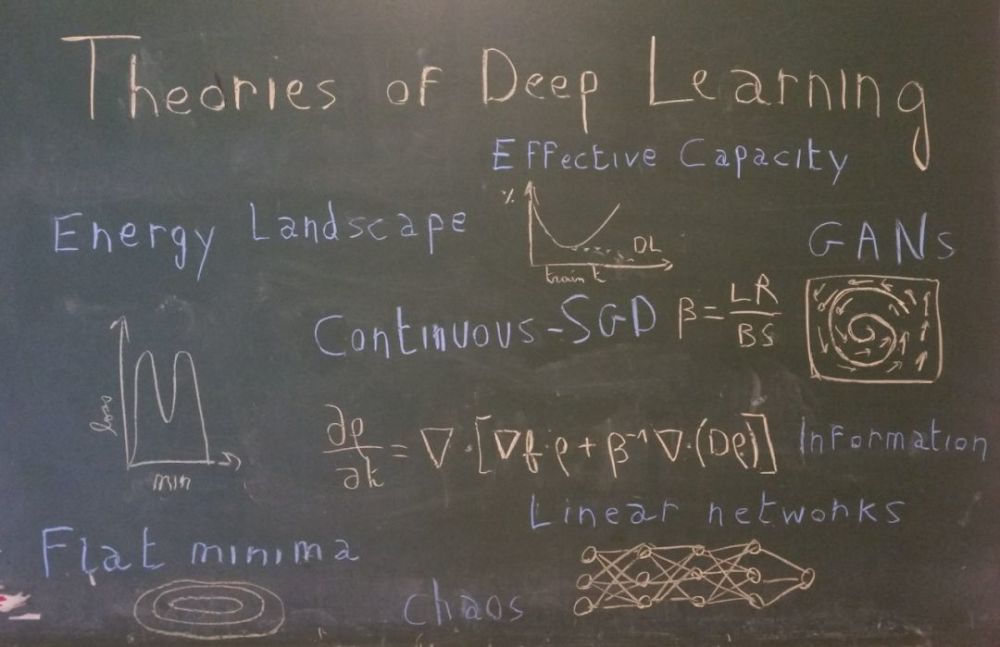 Theories of Deep Learning
Effective Capacity
Energy Landscape
%
DL
train t
GANs
Continuous-SGD β = LR / BS
loss
min
∂ρ/∂t = ∇·[∇f·ρ + β⁻¹ ∇·(Dρ)]
Information
Linear networks
Flat minima
chaos